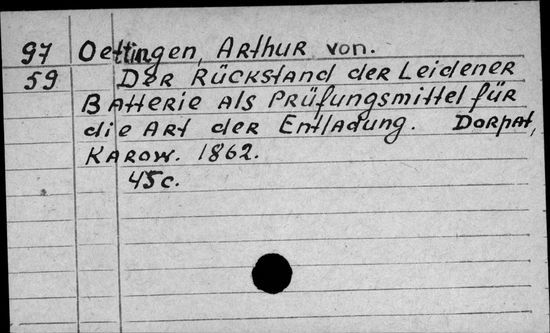 97 Oettingen, Arthur von.
59 Der Rückstand der Leidener
Batterie als Prüfungsmittel für
die Art der Entladung. Dorpat,
Karow. 1862.
45c.